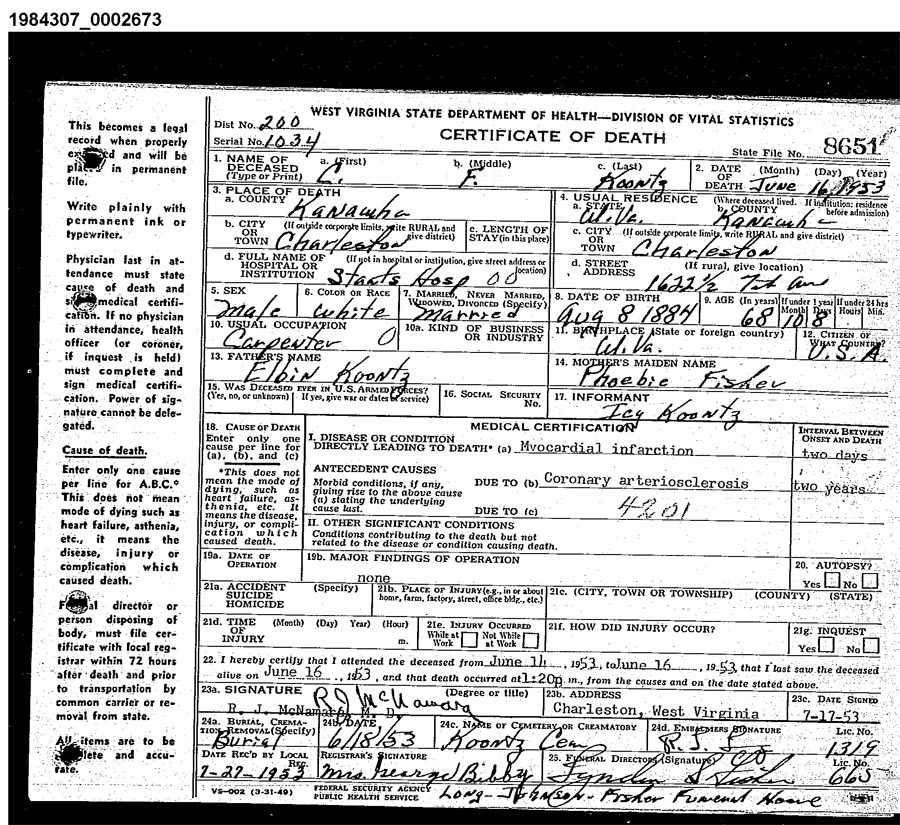 1984307_0002673
WEST VIRGINIA STATE DEPARTMENT OF HEALTH—DIVISION OF VITAL STATISTICS
CERTIFICATE OF DEATH
Dist No. 200
Serial No. 1034
State File No. 8651
This becomes a legal
record when properly
and will be
in permanent
file.
Write plainly with
permanent ink or
typewriter.
Physician last in at-
tendance must state
cause of death and
medical certifi-
cation. If no physician
in attendance, health
officer (or coroner,
if inquest is held)
must complete and
sign medical certifi-
cation. Power of sig-
nature cannot be dele-
gated.
Cause of death.
Enter only one cause
per line for A.B.C.*
This does not mean
mode of dying such as
heart failure, asthenia,
etc., it means the
disease, injury or
complication which
caused death.
director or
person disposing of
body, must file cer-
tificate with local reg-
istrar within 72 hours
after death and prior
to transportation by
common carrier or re-
moval from state.
items are to be
and accu-
rate.
1. NAME OF DECEASED (Type or Print) a. (First) b. (Middle) F. c. (Last) Koontz
2. DATE OF DEATH (Month) (Day) (Year) June 16, 1953
3. PLACE OF DEATH
a. COUNTY Kanawha
4. USUAL RESIDENCE (Where deceased lived. If institution: residence before admission)
a. STATE W.Va. b. COUNTY Kanawha
b. CITY OR TOWN (If outside corporate limits, write RURAL and give district) Charleston
c. LENGTH OF STAY (in this place)
c. CITY OR TOWN (If outside corporate limits, write RURAL and give district) Charleston
d. FULL NAME OF HOSPITAL OR INSTITUTION (If not in hospital or institution, give street address or location) Staats Hosp 00
d. STREET ADDRESS (If rural, give location) 1622½ 7th Ave
5. SEX Male
6. COLOR OR RACE white
7. MARRIED, NEVER MARRIED, WIDOWED, DIVORCED (Specify) married
8. DATE OF BIRTH Aug 8 1884
9. AGE (In years) 68 If under 1 year Month 10 Days 8 If under 24 hrs Hours Min.
10. USUAL OCCUPATION Carpenter 0
10a. KIND OF BUSINESS OR INDUSTRY
11. BIRTHPLACE (State or foreign country) W.Va.
12. CITIZEN OF WHAT COUNTRY? U.S.A.
13. FATHER'S NAME Elbin Koontz
14. MOTHER'S MAIDEN NAME Phoebie Fisher
15. WAS DECEASED EVER IN U.S. ARMED FORCES? (Yes, no, or unknown) If yes, give war or dates of service)
16. SOCIAL SECURITY No.
17. INFORMANT Icy Koontz
18. CAUSE OF DEATH
Enter only one cause per line for (a), (b), and (c)
*This does not mean the mode of dying, such as heart failure, asthenia, etc. It means the disease, injury, or complication which caused death.
MEDICAL CERTIFICATION
INTERVAL BETWEEN ONSET AND DEATH
I. DISEASE OR CONDITION DIRECTLY LEADING TO DEATH* (a) Myocardial infarction two days
ANTECEDENT CAUSES
Morbid conditions, if any, giving rise to the above cause (a) stating the underlying cause last.
DUE TO (b) Coronary arteriosclerosis two years
DUE TO (c) 4201
II. OTHER SIGNIFICANT CONDITIONS
Conditions contributing to the death but not related to the disease or condition causing death.
19a. DATE OF OPERATION
19b. MAJOR FINDINGS OF OPERATION
none
20. AUTOPSY? Yes No
21a. ACCIDENT SUICIDE HOMICIDE (Specify)
21b. PLACE OF INJURY (e.g., in or about home, farm, factory, street, office bldg., etc.)
21c. (CITY, TOWN OR TOWNSHIP) (COUNTY) (STATE)
21d. TIME OF INJURY (Month) (Day) Year) (Hour) m.
21e. INJURY OCCURRED While at Work Not While at Work
21f. HOW DID INJURY OCCUR?
21g. INQUEST Yes No
22. I hereby certify that I attended the deceased from June 14, 1953, to June 16, 1953, that I last saw the deceased
alive on June 16, 1953, and that death occurred at 1:20p m., from the causes and on the date stated above.
23a. SIGNATURE RJ McNamara (Degree or title)
R. J. McNamara, M. D.
23b. ADDRESS Charleston, West Virginia
23c. DATE SIGNED 7-17-53
24a. BURIAL, CREMATION, REMOVAL (Specify) Burial
24b. DATE 6/18/53
24c. NAME OF CEMETERY OR CREAMATORY Koontz Cem
24d. EMBALMERS SIGNATURE Lic. No. 1319
DATE REC'D BY LOCAL REG. 7-27-1953
REGISTRAR'S SIGNATURE Mrs. George Bibby
25. FUNERAL DIRECTORS (Signature) Lic. No. 665
VS-002 (3-31-49)
FEDERAL SECURITY AGENCY
PUBLIC HEALTH SERVICE
Long-Johnson-Fisher Funeral Home